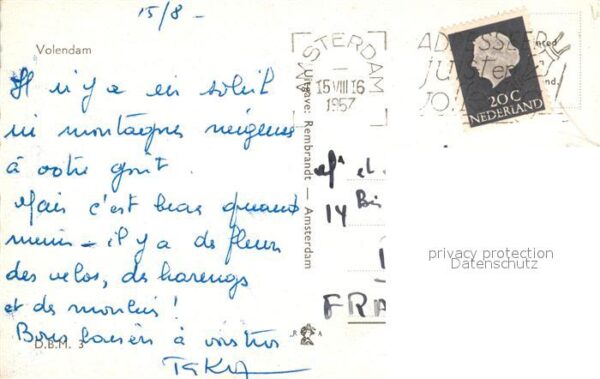 15/8 -
Volendam
Il n'y a ni soleil
ni montagnes neigeuses
à votre goût.
Mais c'est beau quand
même - il y a des fleurs
des velos, des harengs
et des moulins !
Bons baisers à vous tous
D.B.M. 3
Uitgave: Rembrandt — Amsterdam
R A
AMSTERDAM
15 VIII 16
1957
ADRESSEER
JUISTER
20 C
NEDERLAND
et
14 Bis
FRA
privacy protection
Datenschutz